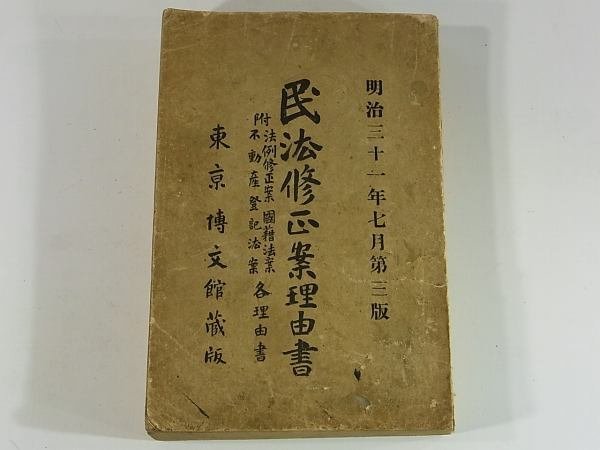 明治三十一年七月第三版
民法修正案理由書
附法例修正案國籍法案
不動産登記法案各理由書
東京博文館蔵版